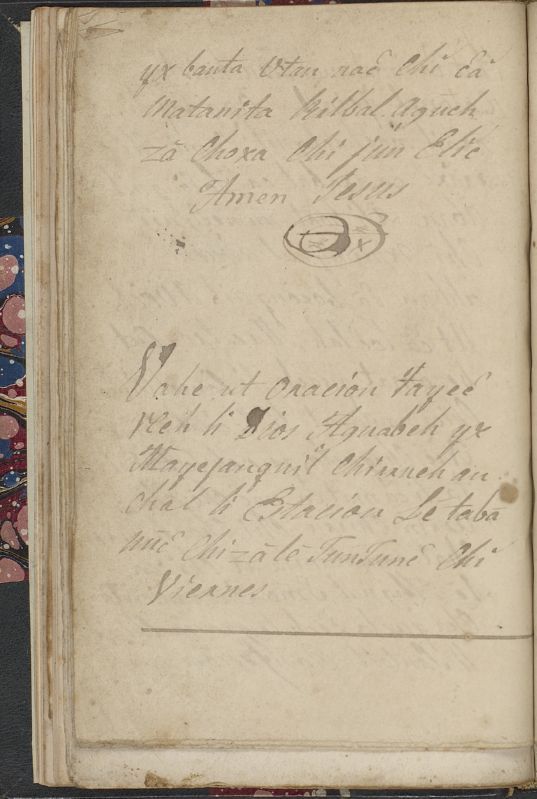 yx banta Utan naē Chi ēā
Matanita Kilbal. Aguch
zā Choxa Chi jun Elic
Amen Jesus
Vahe ut Oracion tayeē
reh li Dios Aguabeh yx
Mayejanquil Chirneh an
chal li Estacion Le taba
nuē Chizālē TunTunē Chi
Viernes